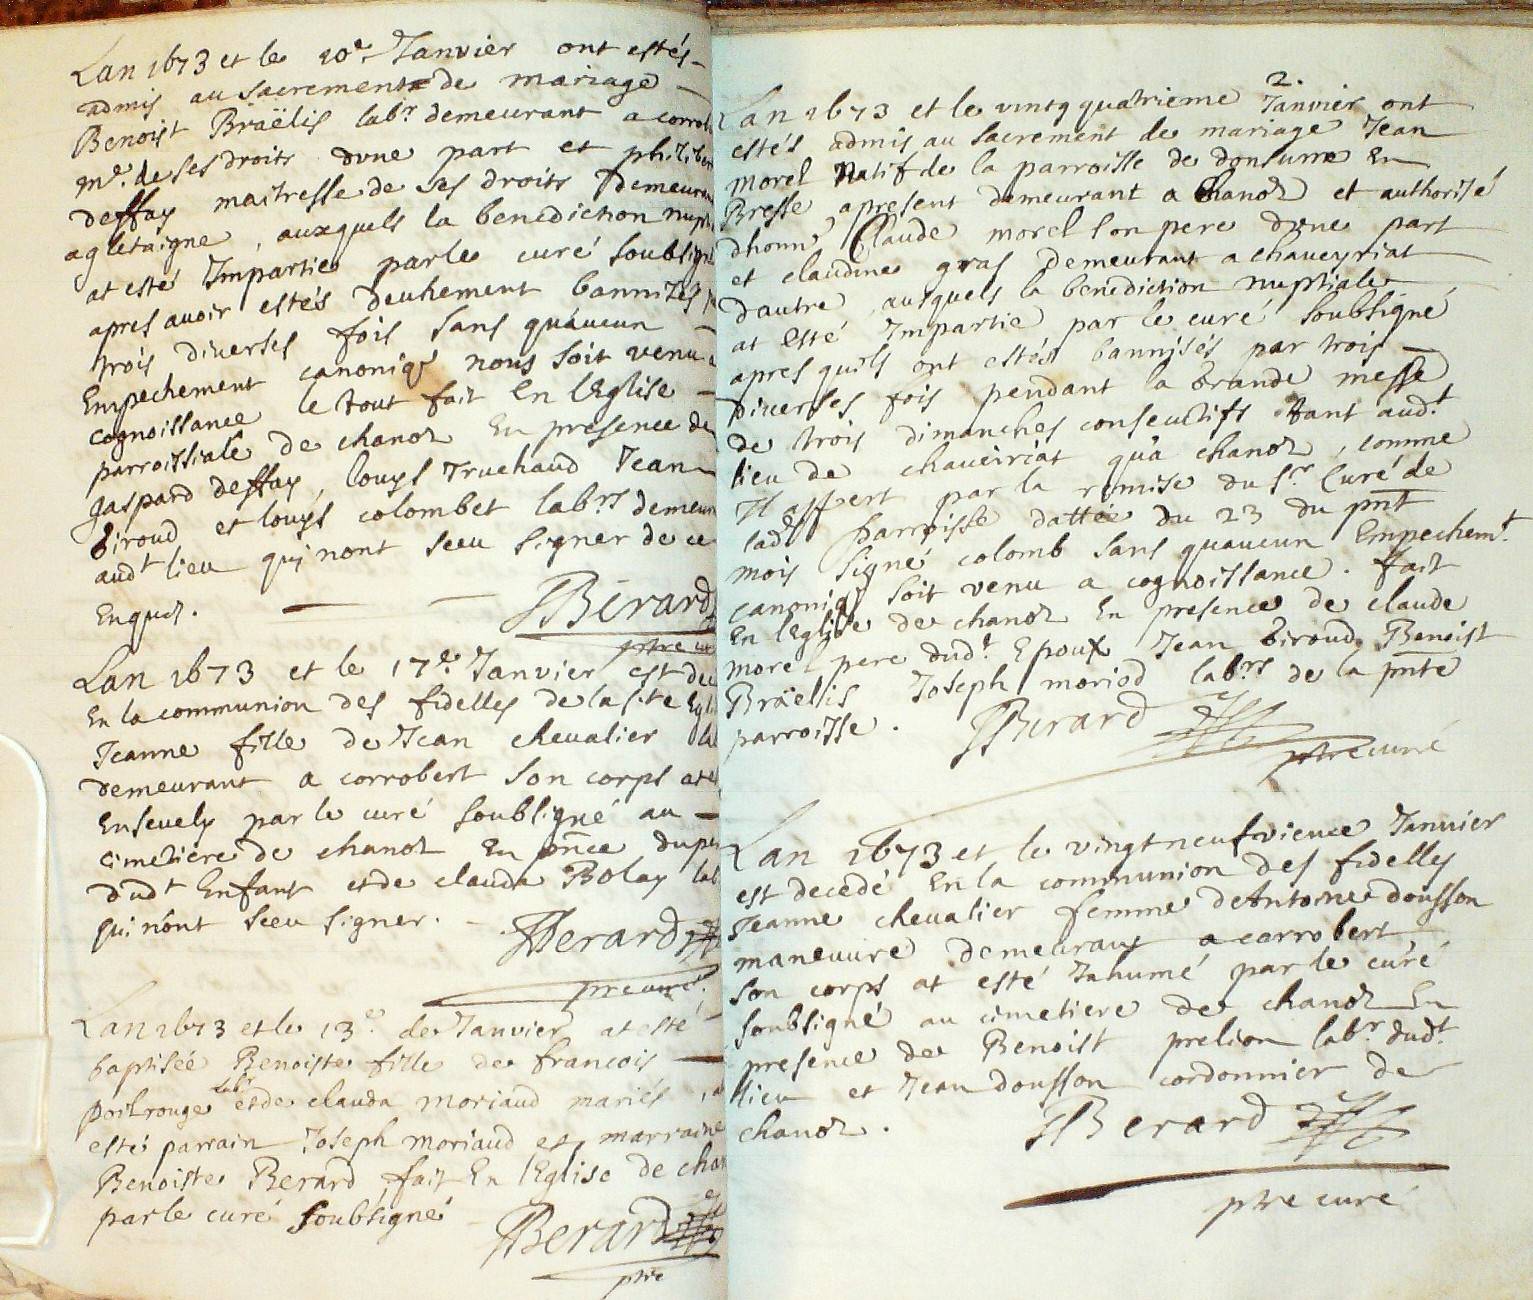 Lan 1673 et le 10e Janvier ont estés
admis au sacrement de mariage
Benoist Braëlis labr demeurant a corrob
me. de ses droits dune part et philiber
deffay maitresse de ses droits demeuran
a gletaigne, auxquels la benediction nupti
at esté Impartie par le curé soubsigné
apres avoir estés deuhement bannizés p
trois diverses fois sans quaucun
Empechement canoniqe nous soit venu a
cognoissance le tout fait En lEglise
parroissiale de chanoz En presence de
gaspard deffay, louys Truchaud Jean
Biroud et louys colombet labrs demeur
audt lieu qui nont sceu signer de ce
Enquis.
Berard
ptre cu
Lan 1673 et le 17e Janvier est dec
En la communion des fidelles de la ste Egli
Jeanne fille de Jean chevalier la
demeurant a corrobert son corps at e
Ensevely par le curé soubsigné au
cimetiere de chanoz En pnce du pe
dudt Enfant et de clauda Bolay lab
qui nont sceu signer.
Berard
ptre curé
Lan 1673 et le 13e de Janvier at esté
baptisée Benoiste fille de francois
poilrouge labr et de clauda moriaud mariés, a
estés parrain Joseph moriaud et marraine
Benoiste Berard, fait En lEglise de cha
par le curé soubsigné
Berard
ptre
2.
Lan 1673 et le vintg quatrieme Janvier ont
estés admis au sacrement de mariage Jean
morel Natif de la parroisse de donsure En
Bresse apresent demeurant a chanoz et authorisé
dhonn Claude morel son pere dune part
et claudine gras demeurant a chaveyriat
dautre, ausquels la benediction nuptiale
at Esté Impartie par le curé soubsigné
apres quils ont estés bannysés par trois
diverses fois pendant la Grande messe
de trois dimanches consecutifs tant audt
lieu de chaveiriat quà chanoz, comme
Il appert par la remise du sr Curé de
ladt parroisse dattée du 23 du pnt
mois signé colomb sans quaucun Empechemt
canoniqe soit venu a cognoissance. fait
En lEglise de chanoz En presence de claude
morel pere dudt Epoux Jean Biroud Benoist
Braëlis Joseph moriod labrs de la pnte
parroisse.
Berard
ptre curé
Lan 1673 et le vingt neufvieme Janvier
est decedé En la communion des fidelles
Jeanne chevalier femme de Antoine dousson
maneuvre demeurant a corrobert
son corps at esté Inhumé par le curé
soubsigné au cimetiere de chanoz En
presence de Benoist prelion labr dudt
lieu et Jean dousson cordonnier de
chanoz.
Berard
ptre curé